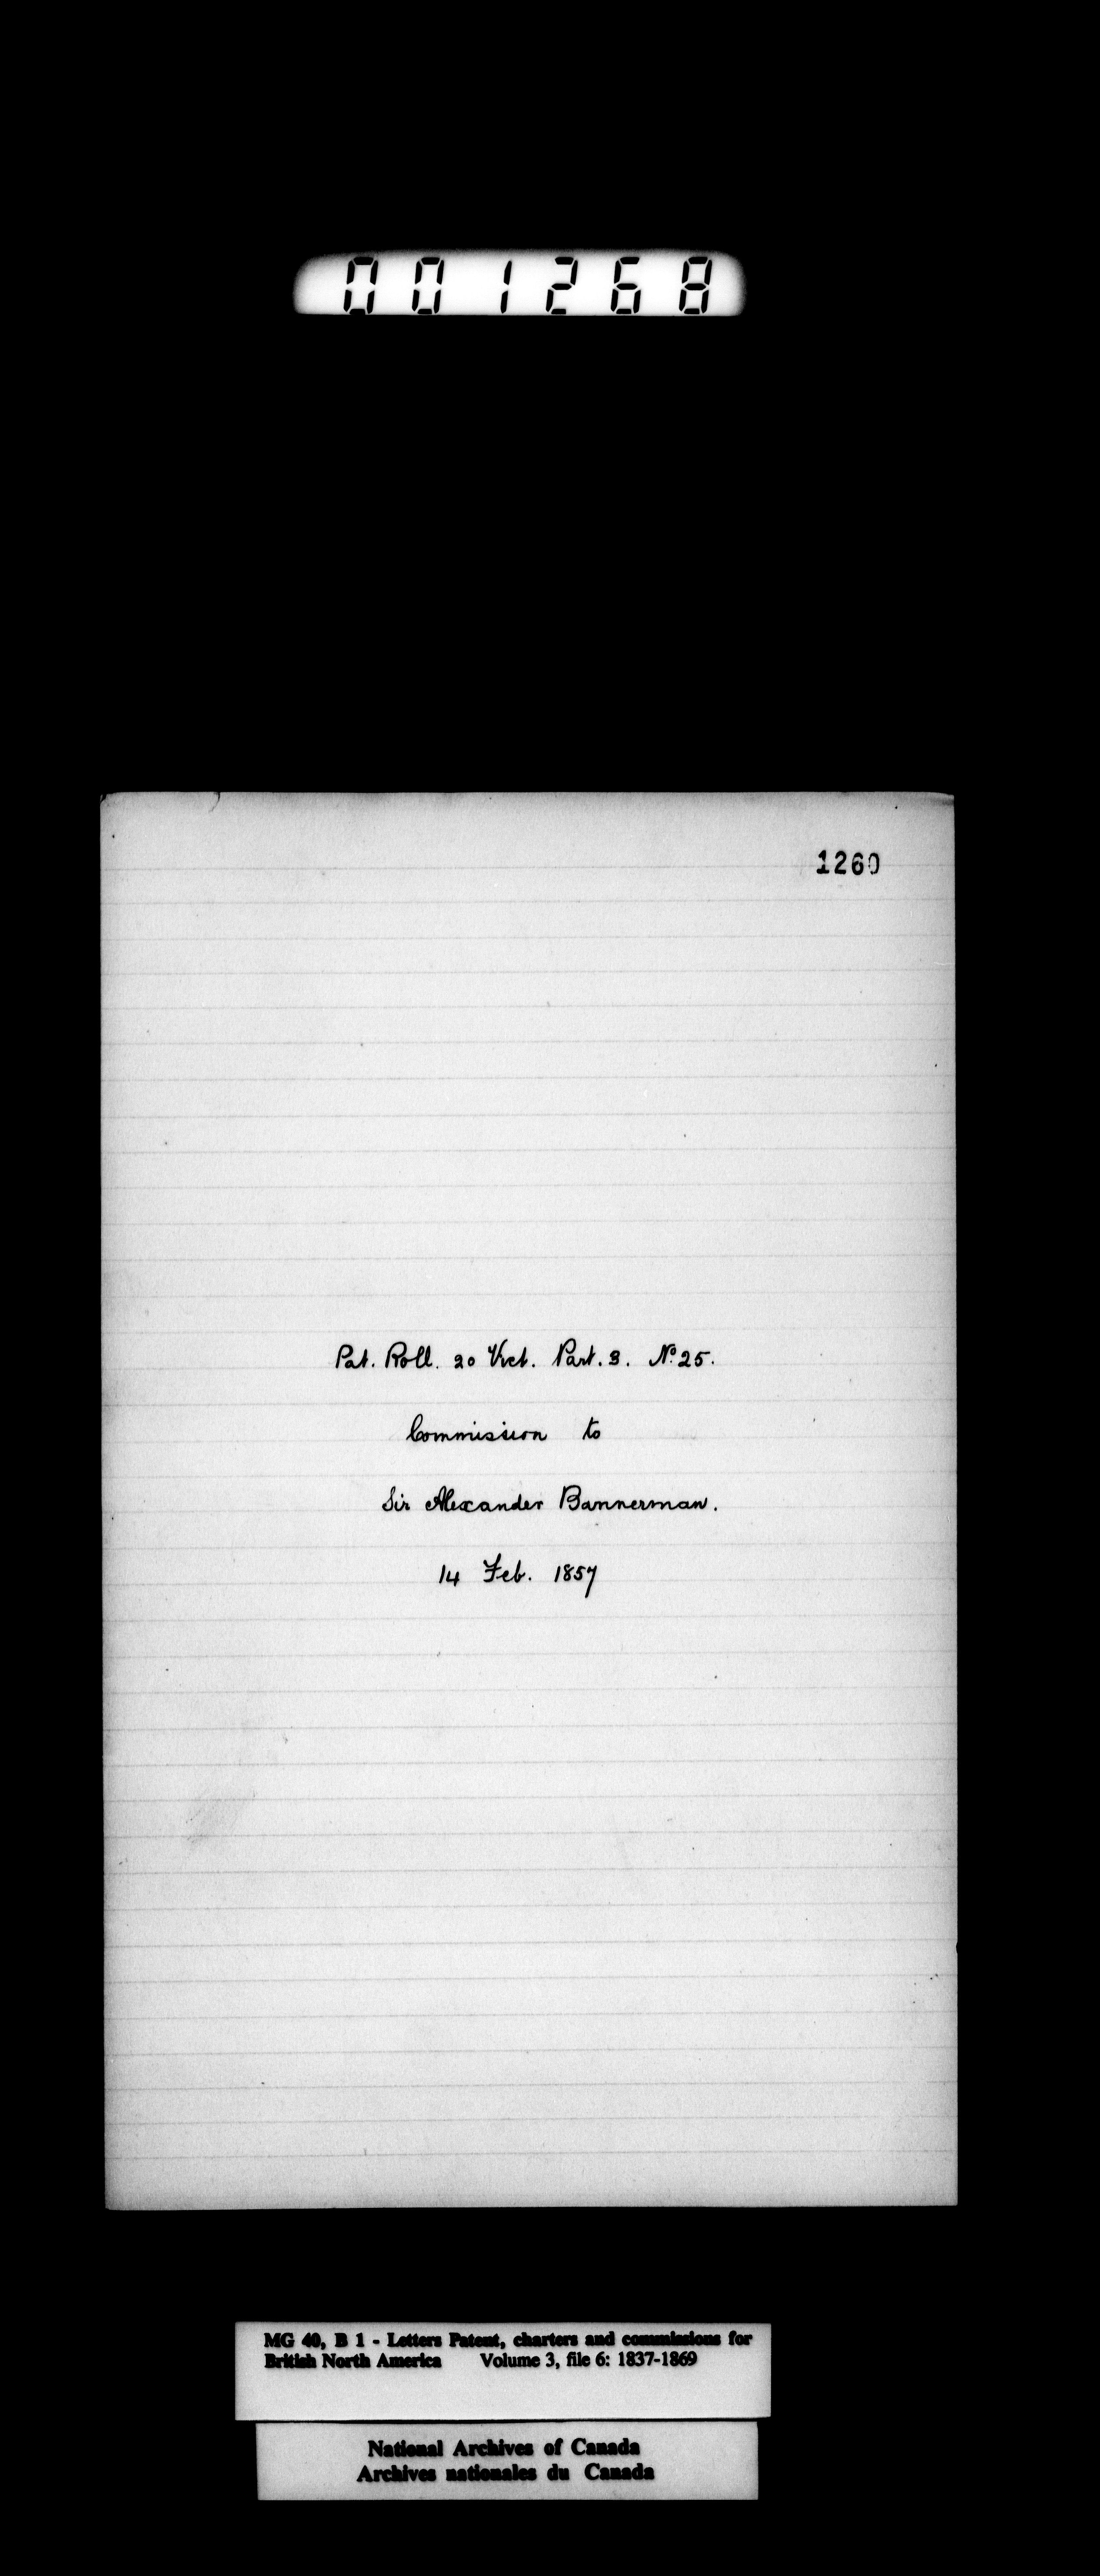 001268
1260
Pat. Roll. 20 Vict. Part. 3. No. 25.
Commission to
Sir Alexander Bannerman.
14 Feb. 1857
MG 40, B 1 - Letters Patent, charters and commissions for
British North America Volume 3, file 6: 1837-1869
National Archives of Canada
Archives nationales du Canada